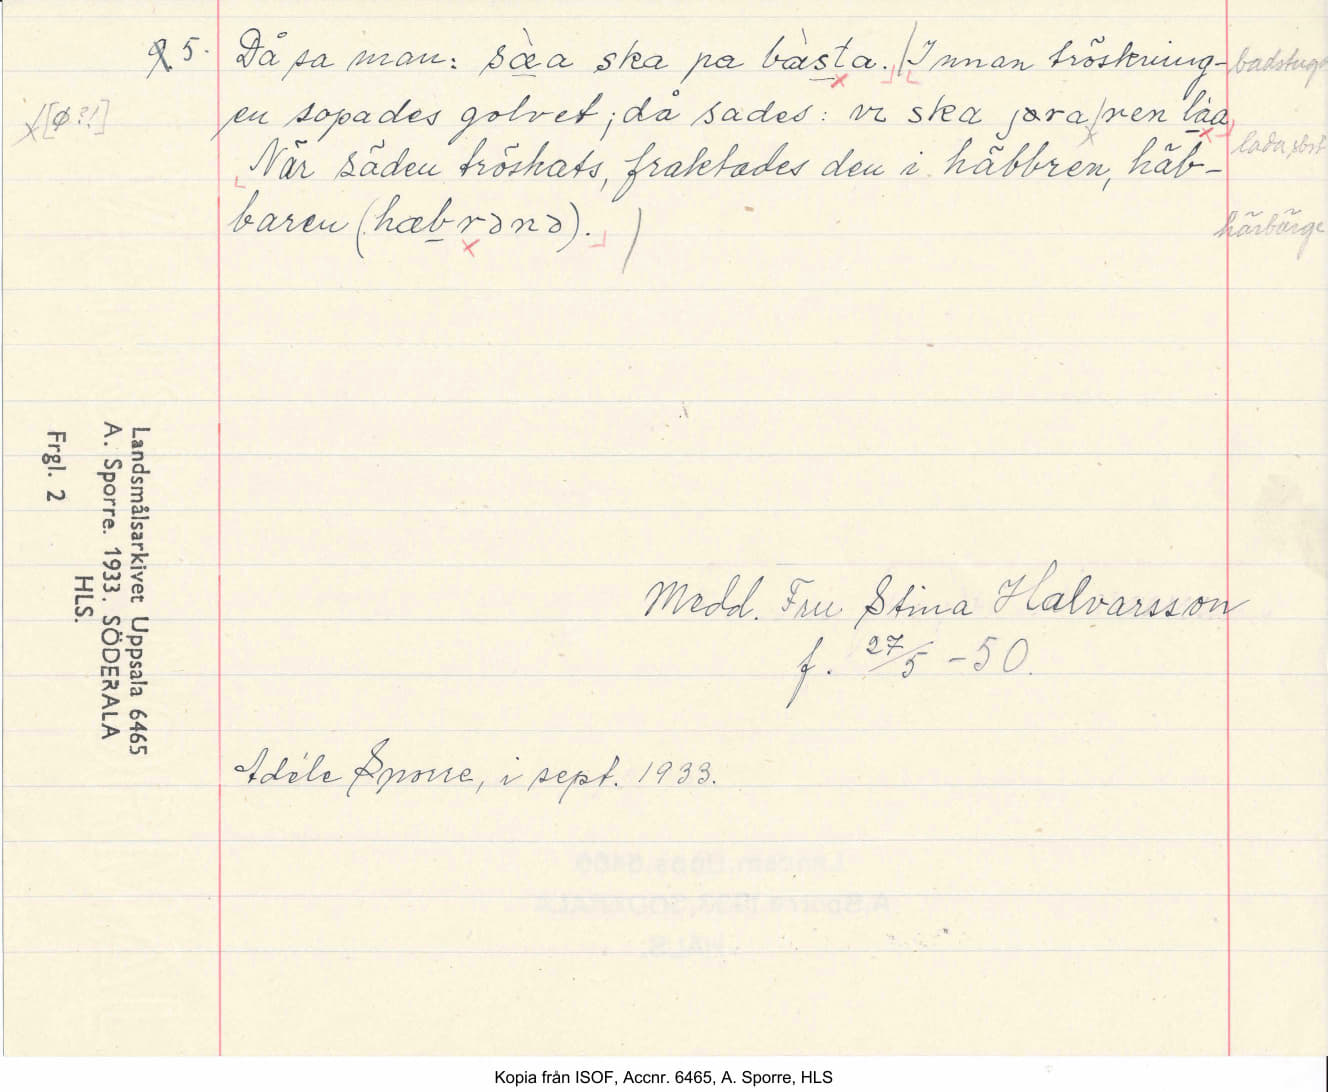 5. Då sa man: sæ̀a ska pa bàsta. Innan tröskning-
badstuga
en sopades golvet; då sades: vi ska jøra ren làa
[ø?!]
lada, sbst
När säden tröskats, fraktades den i häbbren, häb-
baren (hæbrənə).
härbärge
Landsmålsarkivet Uppsala 6465
A. Sporre. 1933. SÖDERALA
HLS.
Frgl. 2
Medd. Fru Stina Halvarsson
f. 27/5 -50.
Adèle Sporre, i sept. 1933.
Kopia från ISOF, Accnr. 6465, A. Sporre, HLS